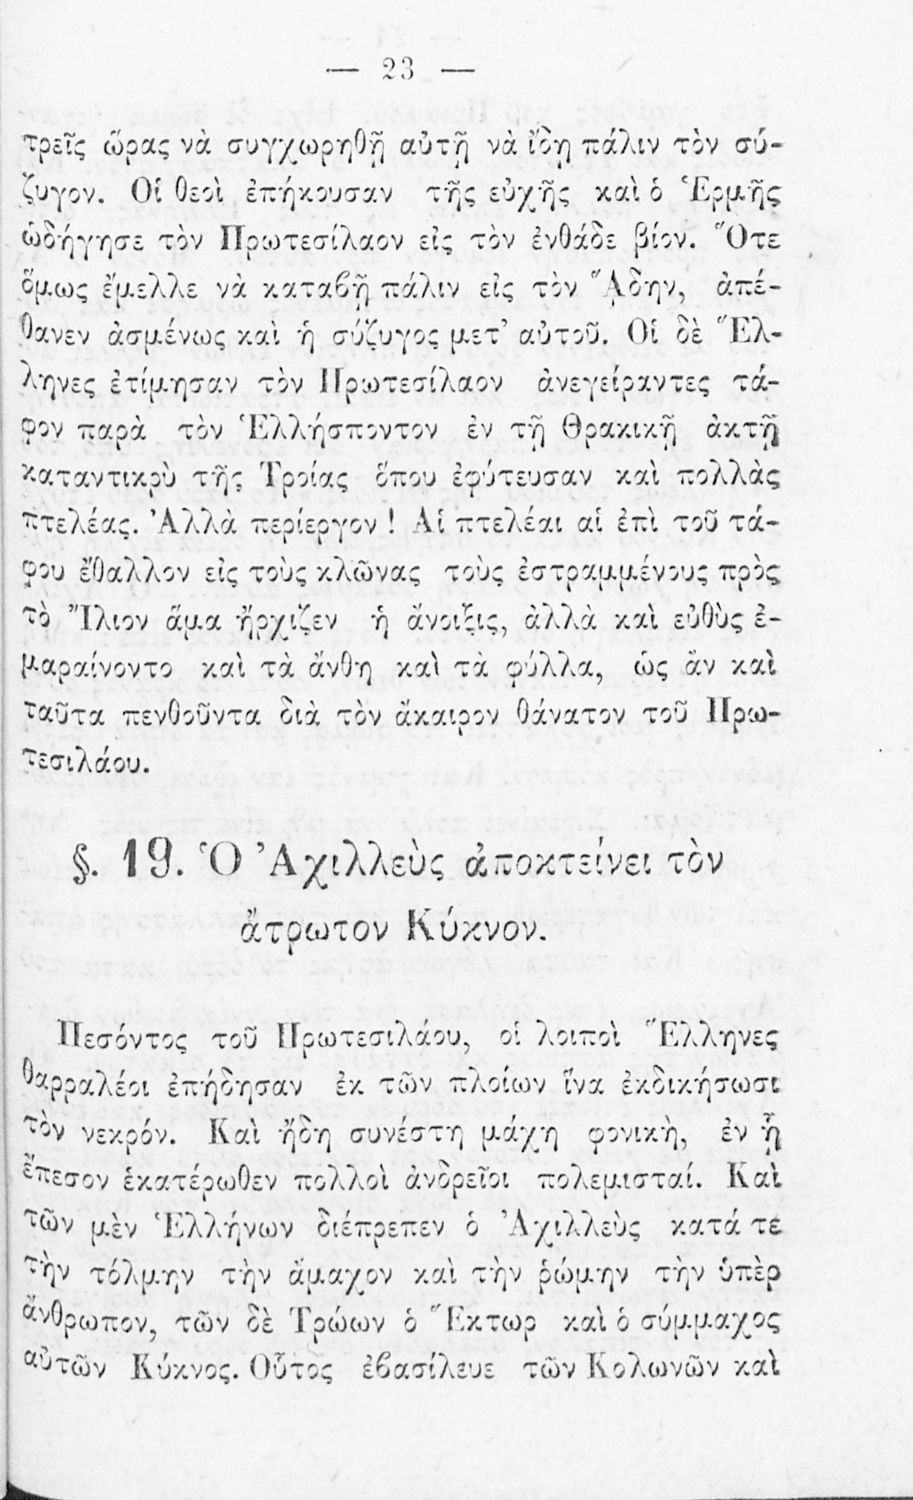 — 23 —
τρεῖς ὥρας νὰ συγχωρηθῇ αὐτῇ νὰ ἴδῃ πάλιν τὸν σύ-
ζυγον. Οἱ θεοὶ ἐπήκουσαν τῆς εὐχῆς καὶ ὁ Ἑρμῆς
ὡδήγησε τὸν Πρωτεσίλαον εἰς τὸν ἐνθάδε βίον. Ὅτε
ὅμως ἔμελλε νὰ καταϐῇ πάλιν εἰς τὸν ᾍδην, ἀπέ-
θανεν ἀσμένως καὶ ἡ σύζυγος μετ’ αὐτοῦ. Οἱ δὲ Ἕλ-
ληνες ἐτίμησαν τὸν Πρωτεσίλαον ἀνεγείραντες τά-
φον παρὰ τὸν Ἑλλήσποντον ἐν τῇ Θρακικῇ ἀκτῇ
καταντικρὺ τῆς Τροίας ὅπου ἐφύτευσαν καὶ πολλὰς
πτελέας. Ἀλλὰ περίεργον! Αἱ πτελέαι αἱ ἐπὶ τοῦ τά-
φου ἔθαλλον εἰς τοὺς κλῶνας τοὺς ἐστραμμένους πρὸς
τὸ Ἴλιον ἅμα ἤρχιζεν ἡ ἄνοιξις, ἀλλὰ καὶ εὐθὺς ἐ-
μαραίνοντο καὶ τὰ ἄνθη καὶ τὰ φύλλα, ὡς ἂν καὶ
ταῦτα πενθοῦντα διὰ τὸν ἄκαιρον θάνατον τοῦ Πρω-
τεσιλάου.
§. 19. Ὁ Ἀχιλλεὺς ἀποκτείνει τὸν
ἄτρωτον Κύκνον.
Πεσόντος τοῦ Πρωτεσιλάου, οἱ λοιποὶ Ἕλληνες
θαρραλέοι ἐπήδησαν ἐκ τῶν πλοίων ἵνα ἐκδικήσωσι
τὸν νεκρόν. Καὶ ἤδη συνέστη μάχη φονικὴ, ἐν ᾗ
ἔπεσον ἑκατέρωθεν πολλοὶ ἀνδρεῖοι πολεμισταί. Καὶ
τῶν μὲν Ἑλλήνων διέπρεπεν ὁ Ἀχιλλεὺς κατά τε
τὴν τόλμην τὴν ἄμαχον καὶ τὴν ῥώμην τὴν ὑπὲρ
ἄνθρωπον, τῶν δὲ Τρώων ὁ Ἕκτωρ καὶ ὁ σύμμαχος
αὐτῶν Κύκνος. Οὗτος ἐϐασίλευε τῶν Κολωνῶν καὶ